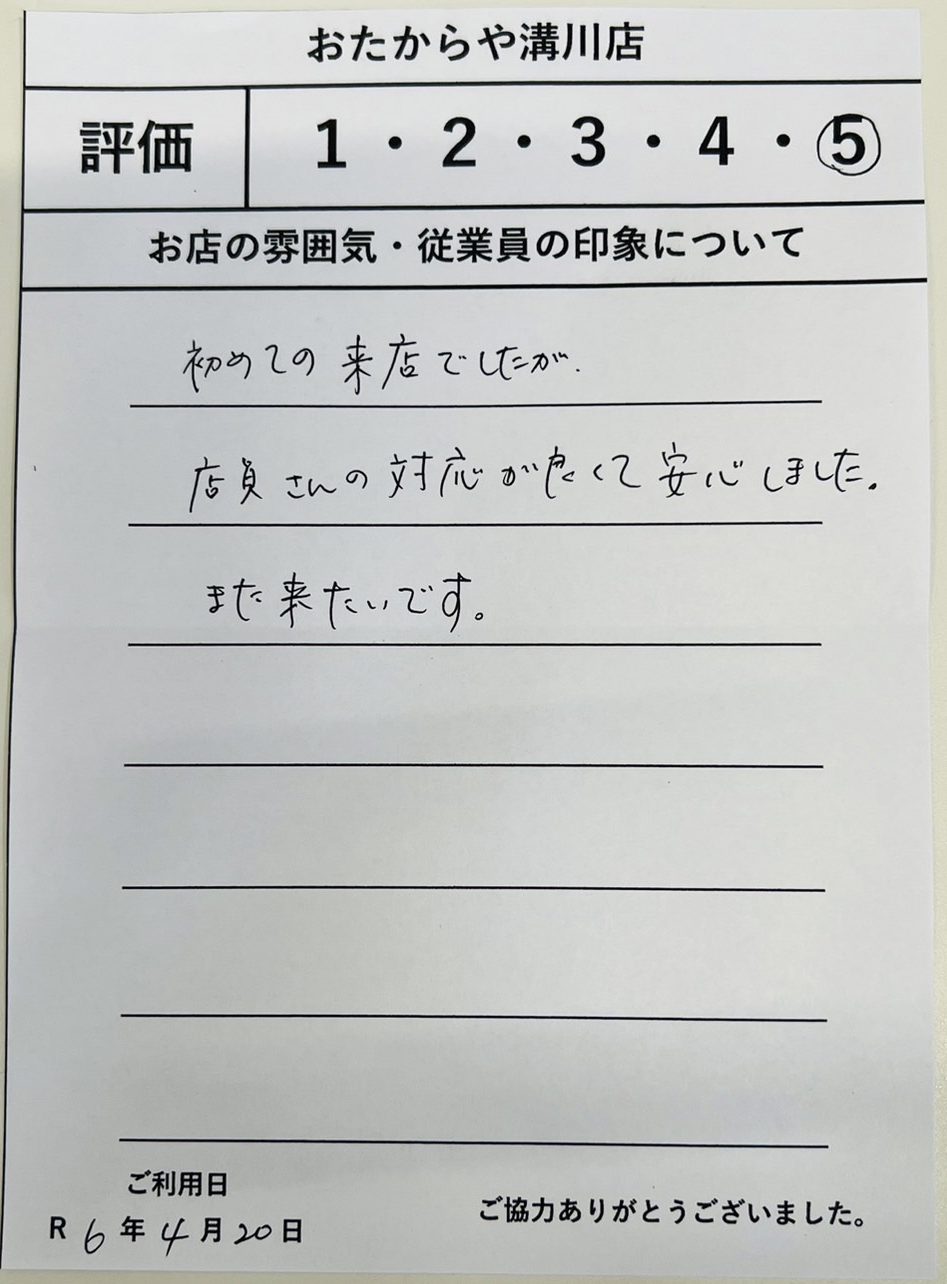 おたからや溝川店
評価 1・2・3・4・5
お店の雰囲気・従業員の印象について
初めての来店でしたが、
店員さんの対応が良くて安心しました。
また来たいです。
ご利用日
R 6 年 4 月 20 日
ご協力ありがとうございました。